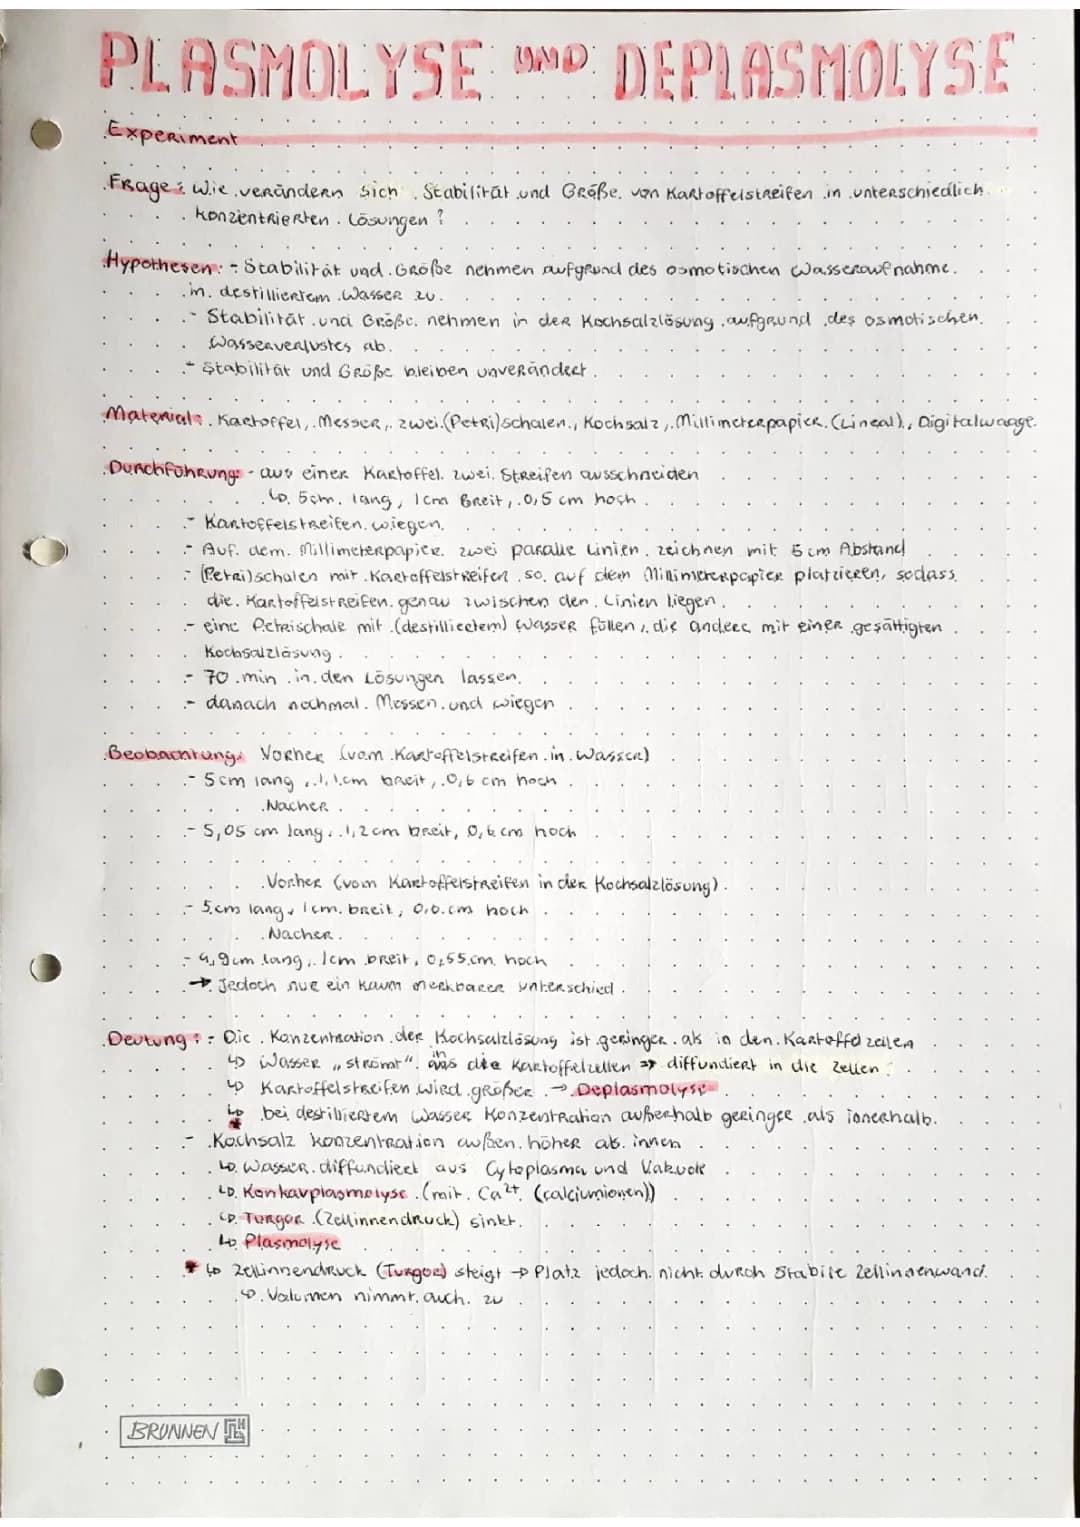 PLASMOLYSE UND DEPLASMOLYSE
Experiment
Frage: Wie verändern sich Stabilität und Größe von Kartoffelstreifen in unterschiedlich
konzentrierten Lösungen?
Hypothesen: - Stabilität und Größe nehmen aufgrund des osmotischen Wasseraufnahme
in destilliertem Wasser zu.
- Stabilität und Größe nehmen in der Kochsalzlösung aufgrund des osmotischen
Wasserverlustes ab.
- Stabilität und Größe bleiben unverändert.
Material: Kartoffel, Messer, zwei (Petri)schalen, Kochsalz, Millimeterpapier (Lineal), Digitalwaage
Durchführung: - aus einer Kartoffel zwei Streifen ausschneiden
↳ 5cm lang, 1cm Breit, 0,5 cm hoch
- Kartoffelstreifen wiegen
- Auf dem Millimeterpapier zwei paralle Linien zeichnen mit 5cm Abstand
- (Petri)schalen mit Kartoffelstreifen so auf dem Millimeterpapier platzieren, sodass
die Kartoffelstreifen genau zwischen den Linien liegen
- eine Petrischale mit (destilliertem) Wasser füllen, die andere mit einer gesättigten
Kochsalzlösung
- 70 min in den Lösungen lassen
- danach nochmal Messen und wiegen
Beobachtung: Vorher (vom Kartoffelstreifen in Wasser)
- 5cm lang, 1,1cm breit, 0,6 cm hoch
Nacher
- 5,05 cm lang, 1,2cm breit, 0,6 cm hoch
Vorher (vom Kartoffelstreifen in der Kochsalzlösung)
- 5cm lang, 1cm breit, cm hoch
Nacher
- 4,9cm lang, 1cm breit, 0,55 cm hoch
→ Jedoch nur ein kaum merkbarer unterschied
Deutung: - Die Konzentration der Kochsalzlösung ist geringer als in den Kartoffelzellen
↳ Wasser „strömt" in die Kartoffelzellen ⇒ diffundiert in die Zellen
↳ Kartoffelstreifen wird größer → Deplasmolyse
↳ bei destilliertem Wasser Konzentration außerhalb geringer als innerhalb.
- Kochsalz konzentration außen höher als innen
↳ Wasser diffundiert aus Cytoplasma und Vakuole
↳ Konkavplasmolyse (mit Ca²⁺ (calciumionen))
↳ Turgor (Zellinnendruck) sinkt
↳ Plasmolyse
* ↳ Zellinnendruck (Turgor) steigt → Platz jedoch nicht durch Stabile Zellinnenwand
↳ Volumen nimmt auch zu
BRUNNEN